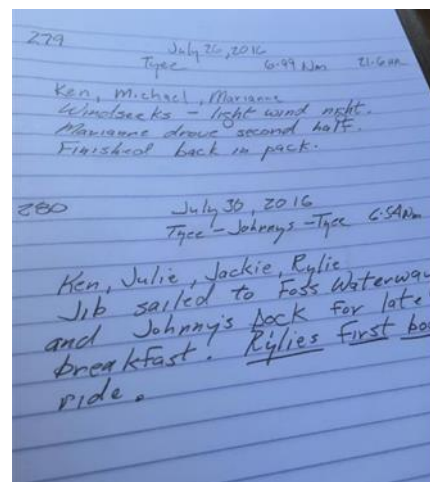 279
July 26, 2016
Tyee 6.99 Nm
Ken, Michael, Marianne
Windseeks - light wind night.
Marianne drove second half.
Finished back in pack.
280
July 30, 2016
Tyee - Johnnys - Tyee 6.5 Nm
Ken, Julie, Jackie, Rylie
Jib sailed to Foss Waterway
and Johnny's Dock for late
breakfast. Rylies first
ride.